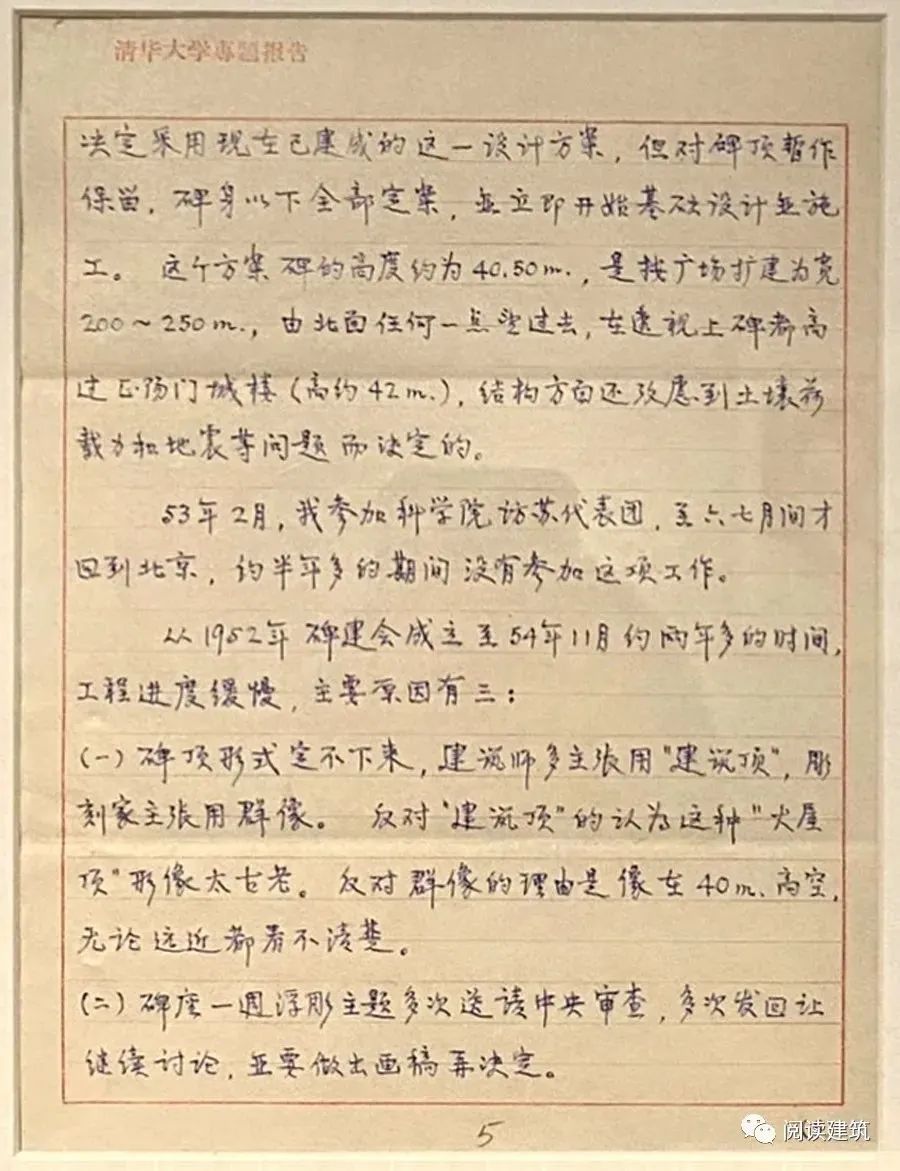 清华大学專題报告
决定采用现在已建成的这一设计方案，但对碑顶暂作
保留，碑身以下全部定案，並立即开始基础设计並施
工。 这个方案碑的高度约为40.50m.，是按广场扩建为宽
200～250m.，由北面任何一点望过去，在透视上碑都高
过正阳门城楼（高约42m.），结构方面还攷慮到土壤荷
载力和地震等问题而决定的。
53年2月，我参加科学院访苏代表团，至六七月间才
回到北京，约半年多的期间没有参加这项工作。
从1952年碑建会成立至54年11月约两年多的时间，
工程进度缓慢，主要原因有三：
(一) 碑顶形式定不下来，建筑师多主张用"建筑顶"，彫
刻家主张用群像。 反对"建筑顶"的认为这种"大屋
顶"形像太古老。 反对群像的理由是像在40m.高空，
无论远近都看不清楚。
(二) 碑座一週浮彫主题多次送请中央审查，多次发回让
继续讨论，並要做出画稿再决定。
5
阅读建筑